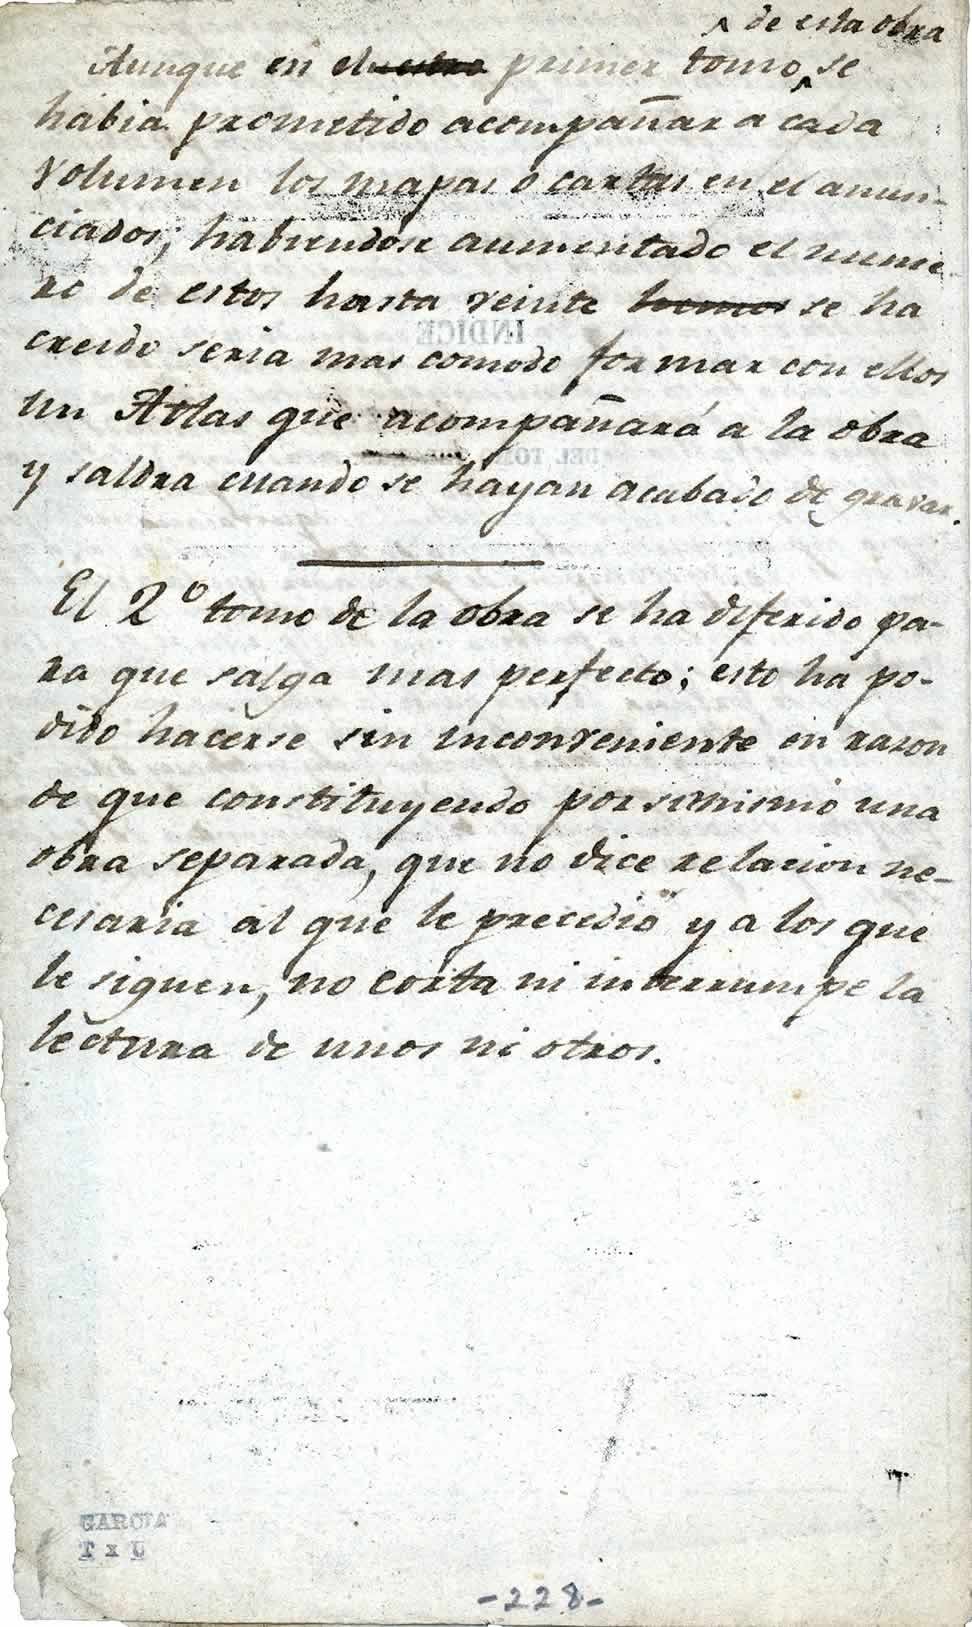 ^ de esta obra
Aunque en el nuestro primer tomo ^ se
habia prometido acompañar a cada
volumen los mapas o cartas en el anun-
ciados; habiendose aumentado el nume-
ro de estos hasta veinte hemos se ha
creido seria mas comodo formar con ellos
un Atlas que acompañará a la obra
y saldra cuando se hayan acabado de gravar.
El 2º tomo de la obra se ha diferido pa-
ra que salga mas perfecto; esto ha po-
dido hacerse sin inconveniente en razon
de que constituyendo por si mismo una
obra separada, que no dice relacion ne-
cesaria al que le precedio y a los que
le siguen, no corta ni interrumpe la
lectura de unos ni otros.
INDICE
DEL TOMO
GARCIA
T x U
-228-